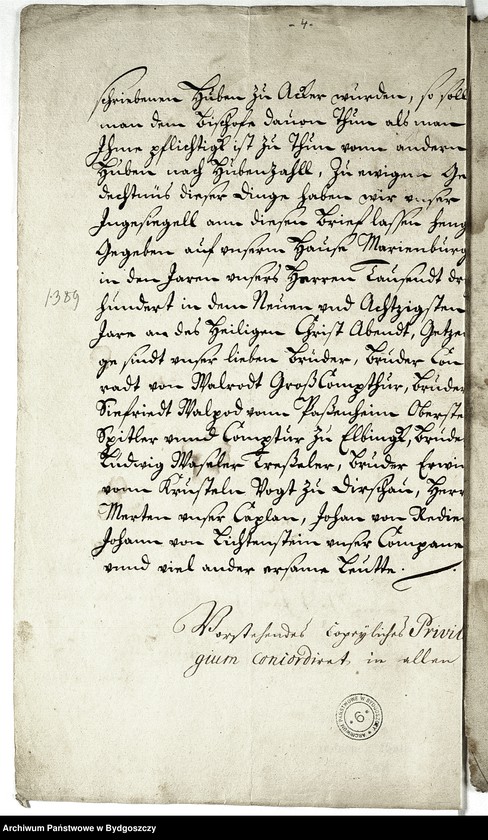 - 4 -
schriebenen Huben zu Acker wurden, so soll
man dem Bischofe dauon Thun als man
Ihme pflichtigk ist zu Thun vonn andern
Huben nach Hubenzahll, Zu ewigem Ge
dechtnüs dieser dinge haben wir vnser
Ingesiegell ann diesen Brief lassen heng
Gegeben auf vnserm Hause Marienburg
in den Jaren vnsers Herren Tausendt dr
1389
hundert in dem Neuen vnd Achtzigsten
Jare an des Heiligen Christ Abendt, Getzeu
ge sindt vnser lieben Brüder, Bruder Con
radt von Walrodt Groß Compthur, Bruder
Siefriedt Walpod vonn Paßenheim Oberste
Spitler vnnd Comptur zu Elbingk, Brude
Ludwig Waseler Treßeler, Bruder Erwin
vonn Krusteln Vogt zu Dirschau, Herr
Merten vnser Caplan, Johan von Redien
Johann von Lichtenstein vnser Compane
vnnd viel ander ersame Leutte.
Vorstehendes Copeyliches Privil
gium coniordiret in allen
ARCHIWUM PAŃSTWOWE W BYDGOSZCZY
6
Archiwum Państwowe w Bydgoszczy